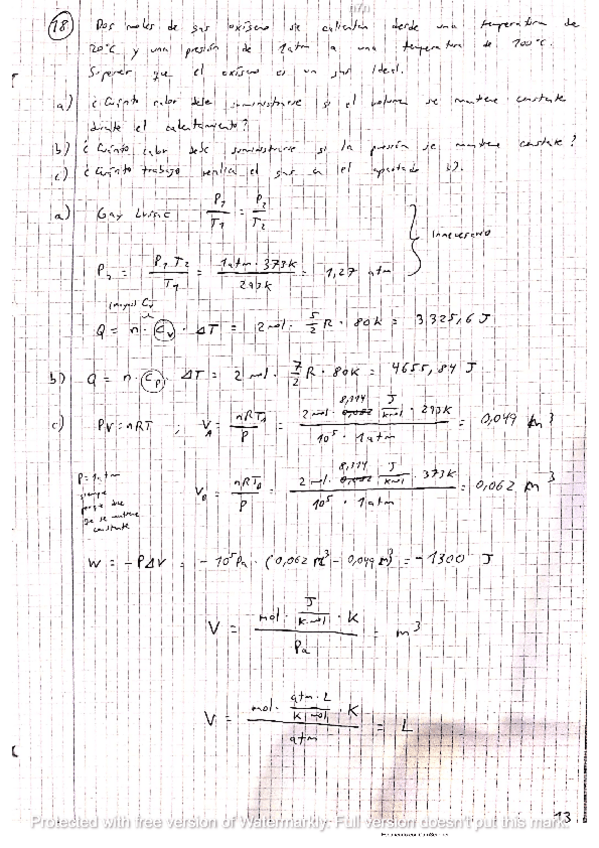 18) Dos moles de gas oxígeno se calientan desde una temperatura de
20°C y una presión de 1atm a una temperatura de 100°C.
Suponer que el oxígeno es un gas ideal.
a) ¿Cuánto calor debe suministrarse si el volumen se mantiene constante
durante el calentamiento?
b) ¿Cuánto calor debe suministrarse si la presión se mantiene constante?
c) ¿Cuánto trabajo realiza el gas en el apartado b).
a) Gay Lussac P1/T1 = P2/T2
Innecesario
P2 = P1 T2/T1 = 1atm · 373K/293K = 1,27 atm
Q = n · Cv · ΔT = 2 mol · 5/2 R · 80K = 3325,6 J
b) Q = n · Cp · ΔT = 2 mol · 7/2 R · 80K = 4655,84 J
c) PV = nRT ; VA = nRTA/P = 2 mol · 8,314 J/K·mol · 293K/10⁵ · 1atm = 0,049 m³
P = 1atm
siempre
porque
se mantiene
constante
VB = nRTB/P = 2 mol · 8,314 J/K·mol · 373K/10⁵ · 1atm = 0,062 m³
W = -PΔV = -10⁵ Pa · (0,062 m³ - 0,049 m³) = -1300 J
V = mol · J/K·mol · K/Pa = m³
V = mol · atm·L/K·mol · K/atm = L
13
Protected with free version of Watermarkly. Full version doesn't put this mark.